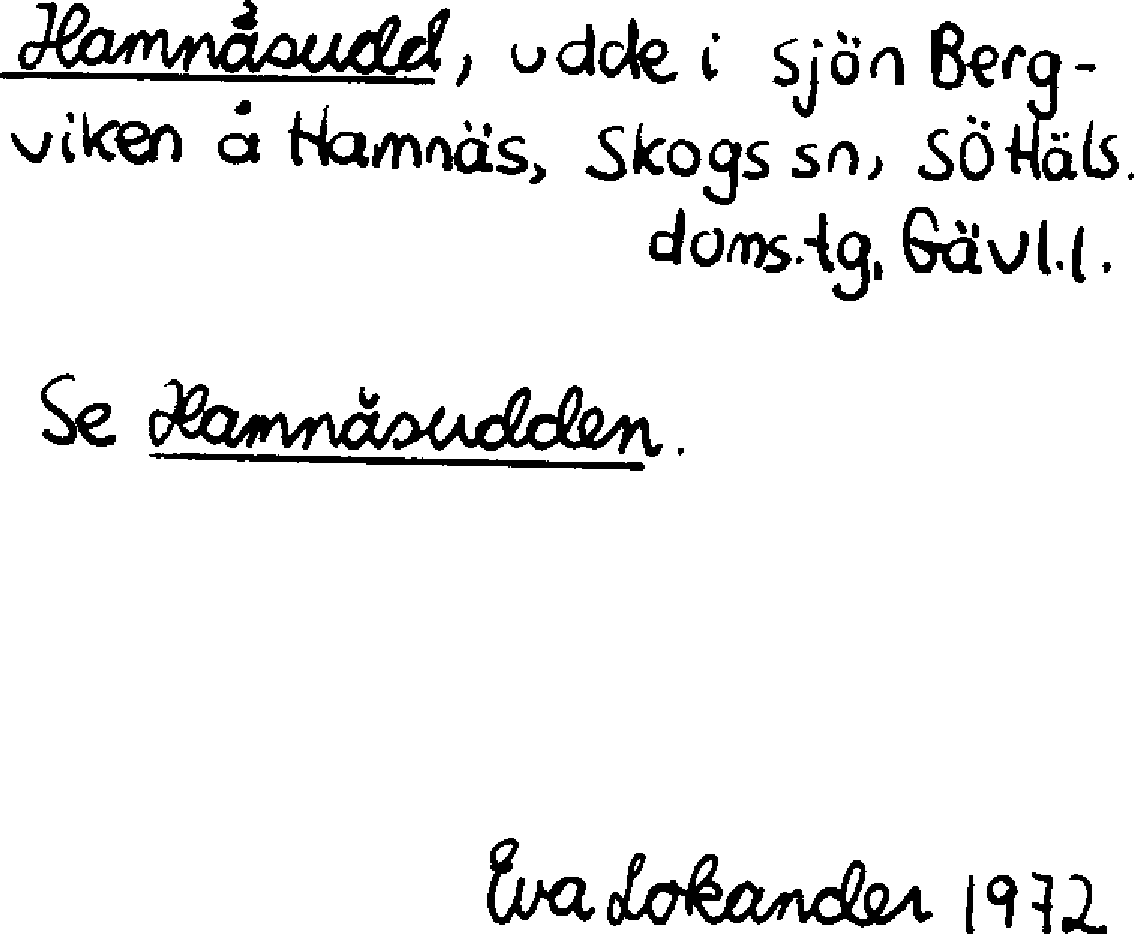 Hamnåsudd, udde i sjön Berg-
viken å Hamnäs, Skogs sn, SÖHäls.
doms.tg, Gävl.l.
Se Hamnåsudden.
Eva Lokander 1972